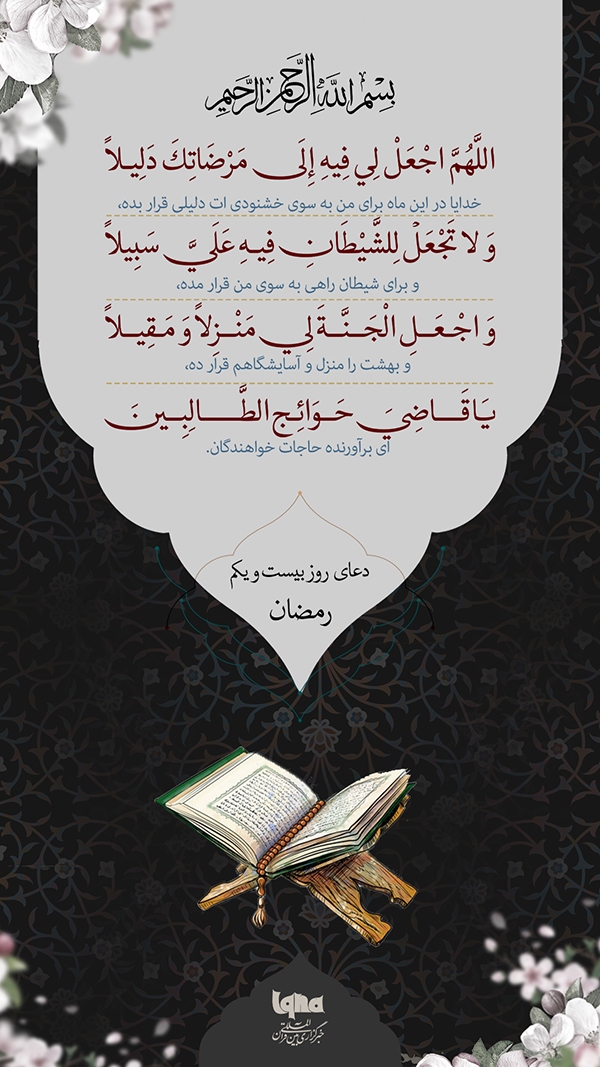 بِسْمِ اللَّهِ الرَّحْمَنِ الرَّحِيمِ
اللَّهُمَّ اجْعَلْ لِي فِيهِ إِلَى مَرْضَاتِكَ دَلِيلاً
خدایا در این ماه برای من به سوی خشنودی ات دلیلی قرار بده،
وَ لا تَجْعَلْ لِلشَّيْطَانِ فِيهِ عَلَيَّ سَبِيلاً
و برای شیطان راهی به سوی من قرار مده،
وَ اجْعَلِ الْجَنَّةَ لِي مَنْزِلاً وَ مَقِيلاً
و بهشت را منزل و آسایشگاهم قرار ده،
يَا قَاضِيَ حَوَائِجِ الطَّالِبِينَ
ای برآورنده حاجات خواهندگان.
دعای روز بیست و یکم
رمضان
iqna
خبرگزاری بین المللی قرآن